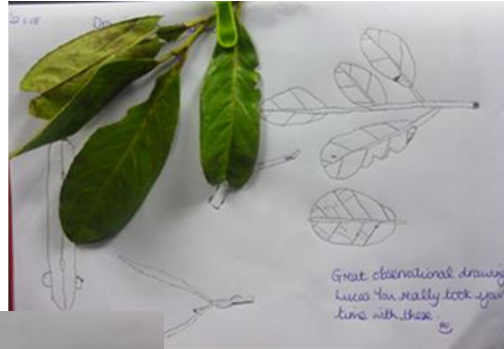 Great observational drawing
Lucas You really took your
time with these.